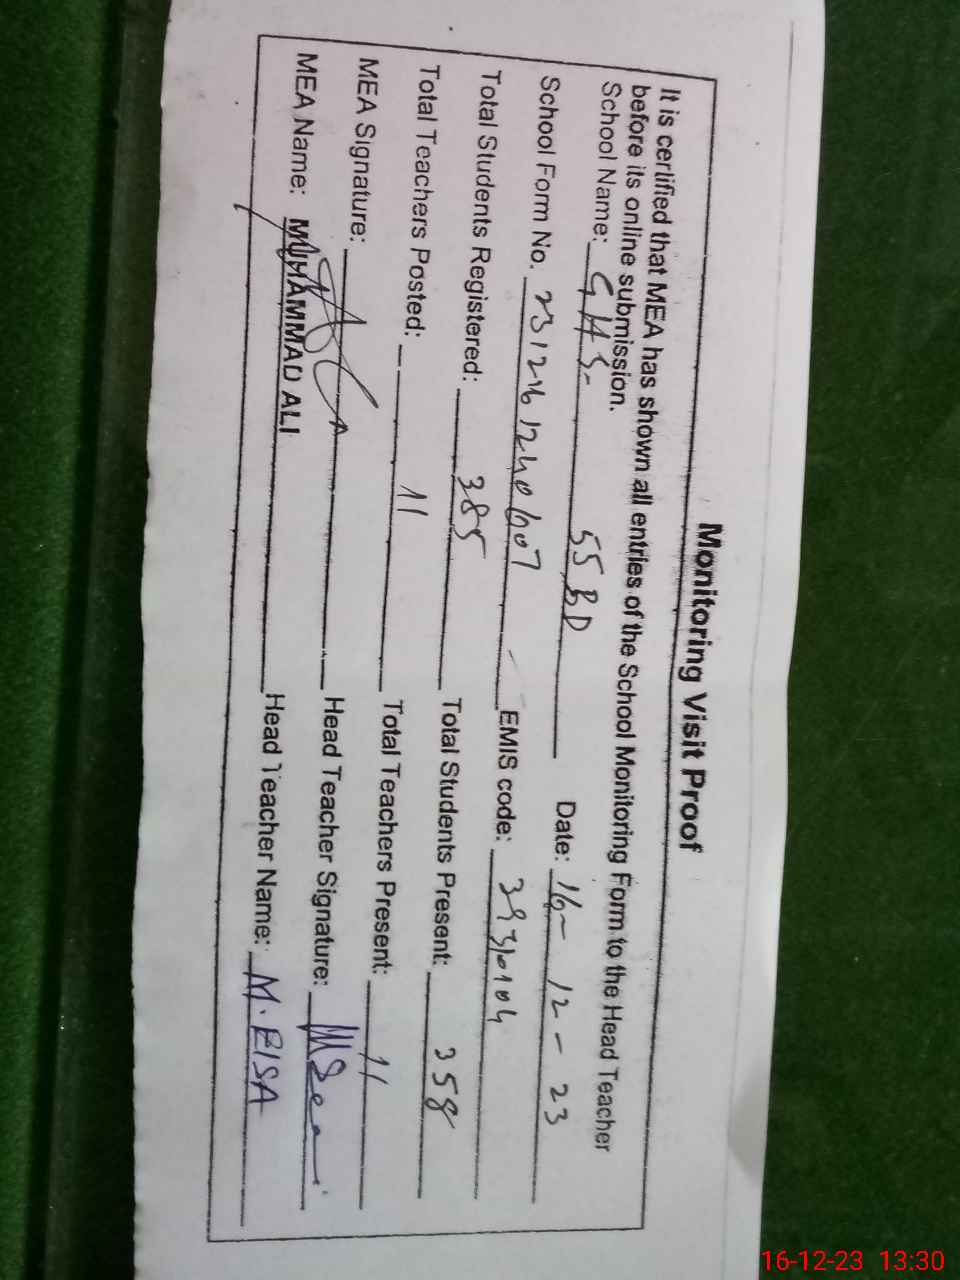 Monitoring Visit Proof
It is certified that MEA has shown all entries of the School Monitoring Form to the Head Teacher
before its online submission.
School Name: GHS- 55 BD Date: 16-12-23
School Form No. EMIS code:
Total Students Registered: 385 Total Students Present: 358
Total Teachers Posted: 11 Total Teachers Present: 11
MEA Signature: Head Teacher Signature:
MEA Name: MUHAMMAD ALI Head Teacher Name: M. EISA
16-12-23 13:30